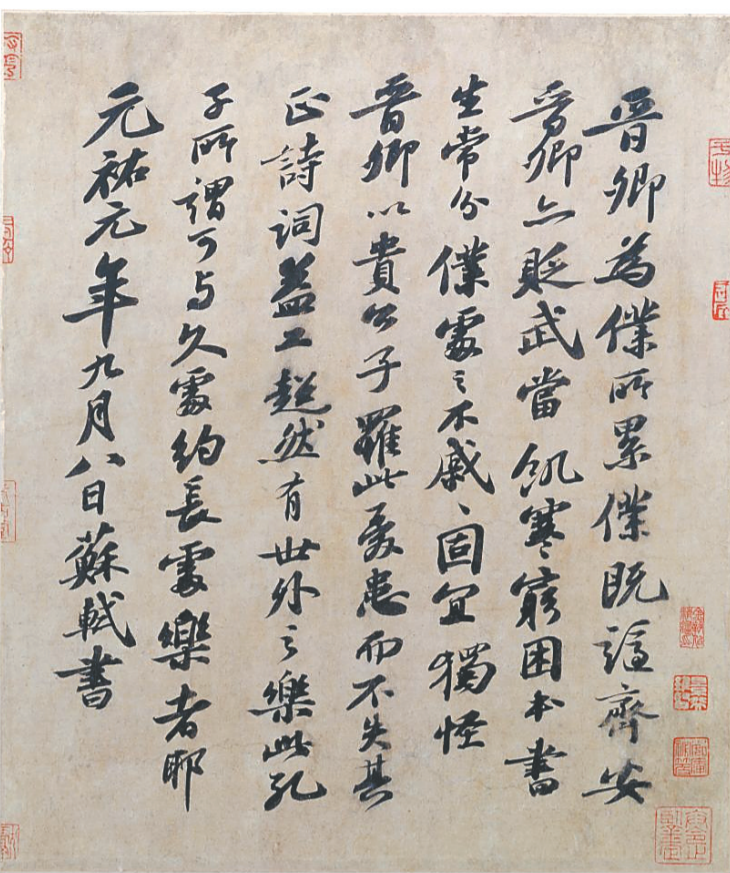 晉卿為僕所累僕既謫齊安
晉卿亦貶武當飢寒窮困本書
生常分僕處之不戚戚固宜獨怪
晉卿以貴公子罹此憂患而不失其
正詩詞益工超然有世外之樂此孔
子所謂可与久處約長處樂者耶
元祐元年九月八日蘇軾書